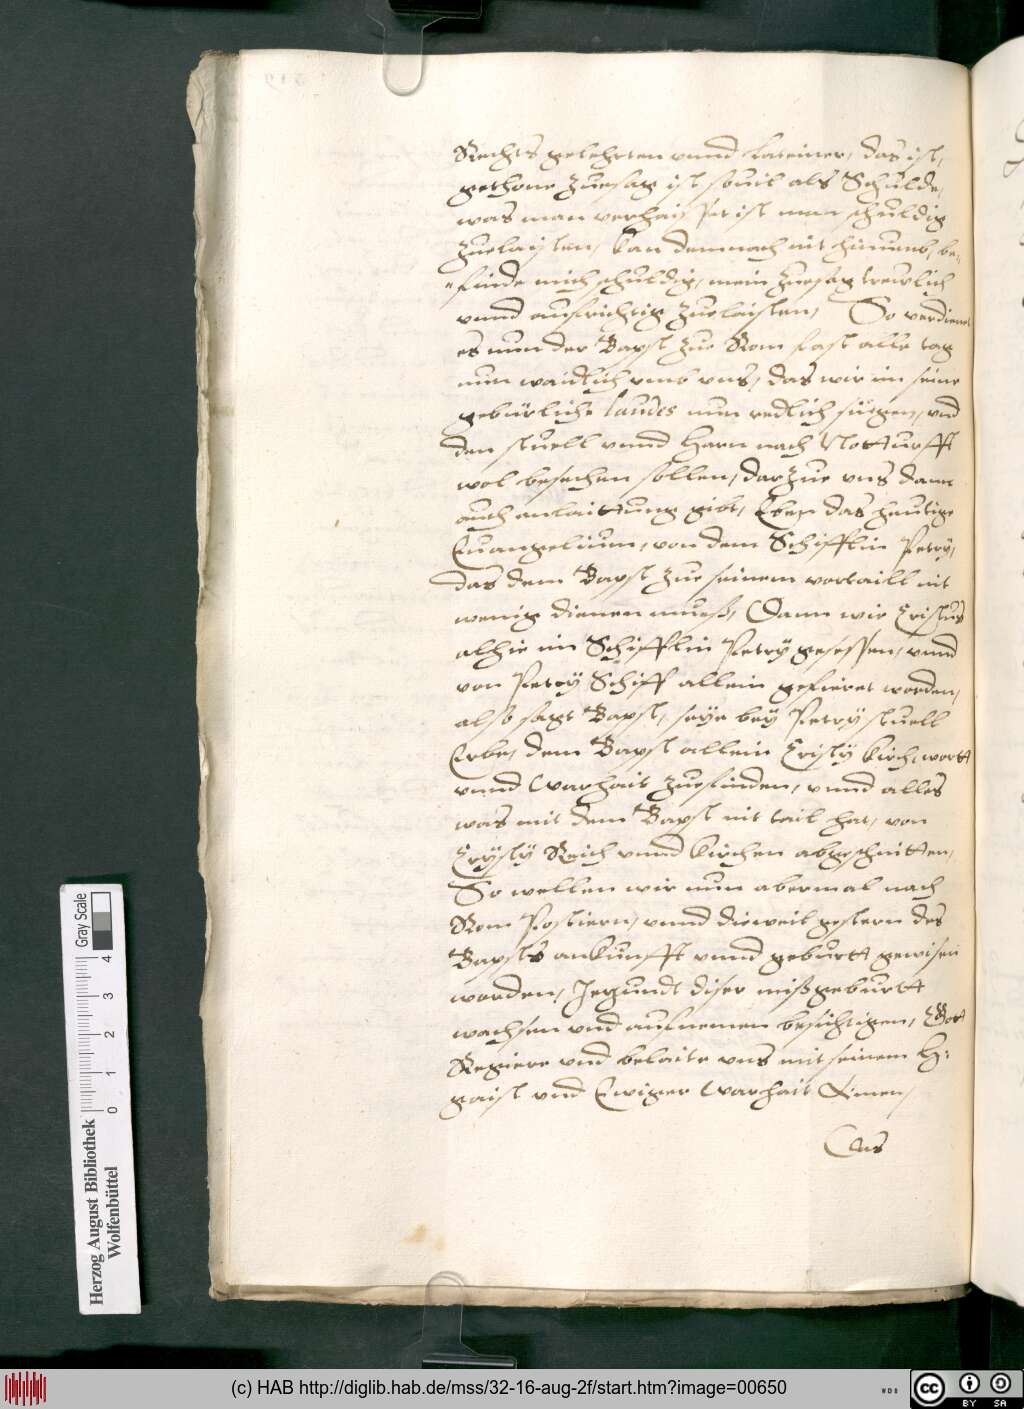 Rechts gelehrten vnnd Lateiner, das ist,
gethone Zuesag ist souil als Schulde,
was man verhaisset ist man schuldig
Zuelaisten, Kan demnach nit hinumb, be¬
finde mich schuldig, mein Zuesag trewlich
vnnd aufrichtig Zuelaisten, So verdient
es nun der Bapst Zue Rom fast alle tag
nun waidlich vmb vns, das wir im seine
gebürliche laudes nun redlich singen, vnd
den stuell vnnd Herrn nach Notturfft
wol besechen sollen, darzue vns dann
auch anlaittung gibt, Eben das heutige
Euangelium, von dem Schifflin Petrÿ,
das dem Bapst Zue seinem vortaill nit
wenig dienen mueß, Dann wie Cristus
alhie im Schifflin Petrÿ gesessen, vnnd
von Petrÿ Schiff allein gefieret worden,
also sagt Bapst, seÿe beÿ Petrÿ stuell
Erbe, dem Bapst allein Cristÿ Kirch, wortt
vnnd Warhait Zuefinden, vnnd alles
was mit dem Bapst nit tail hat, von
Crÿstÿ Reich vnnd Kirchen abgeschnitten,
So wellen wir nun abermal nach
Rom Postiern, vnnd dieweil gestern des
Bapsts ankunfft vnnd geburtt gewisen
worden, Jezundt diser mißgeburtt
wachsen vnd aufnemen besichtigen, Gott
Regiere vnd belaite vns mit seinem H:
gaist vnd Ewiger Warhait Amen,
Das
Gray Scale
0 1 2 3 4
Herzog August Bibliothek
Wolfenbüttel
(c) HAB http://diglib.hab.de/mss/32-16-aug-2f/start.htm?image=00650
WDB
cc BY SA